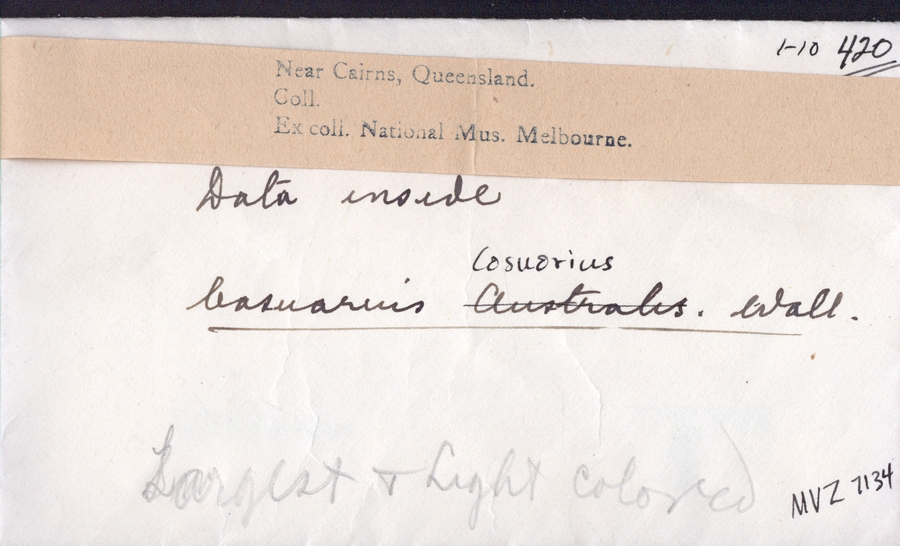 1-10 420
Near Cairns, Queensland.
Coll.
Ex coll. National Mus. Melbourne.
Data inside
Casuarius
Casuarius Australis. Wall.
Largest + Light colored
MVZ 7134